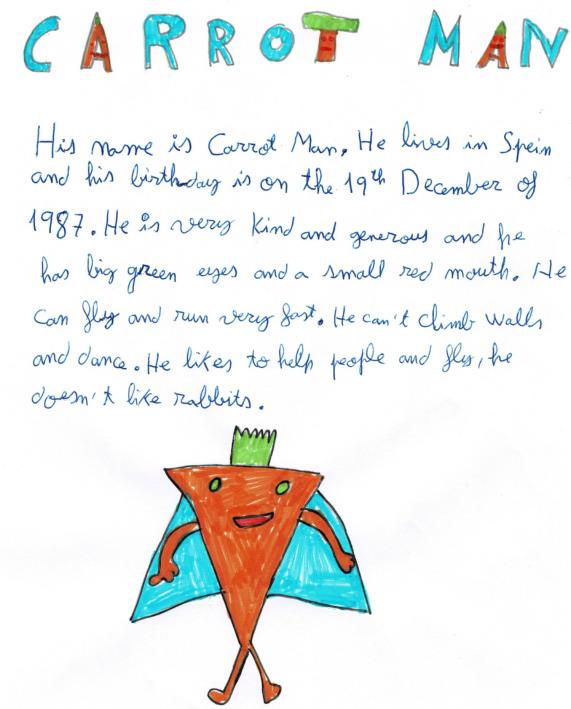 CARROT MAN
His name is Carrot Man. He lives in Spein
and his birthday is on the 19th December of
1987. He is very kind and generous and he
has big green eyes and a small red mouth. He
can fly and run very fast. He can't climb walls
and dance. He likes to help people and fly, he
doesn't like rabbits.